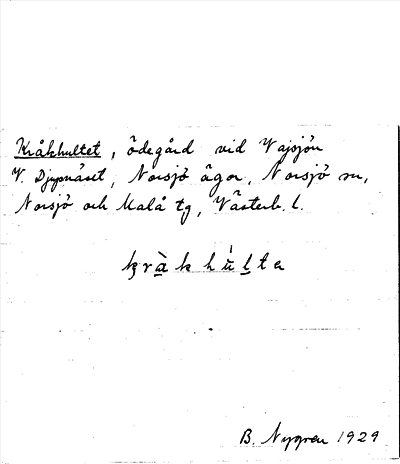 Kråkhultet, ödegård vid Vajsjön
V. Djupnäset, Norsjö ägor, Norsjö sn,
Norsjö och Malå tg, Västerb. l.
B. Nygren 1929